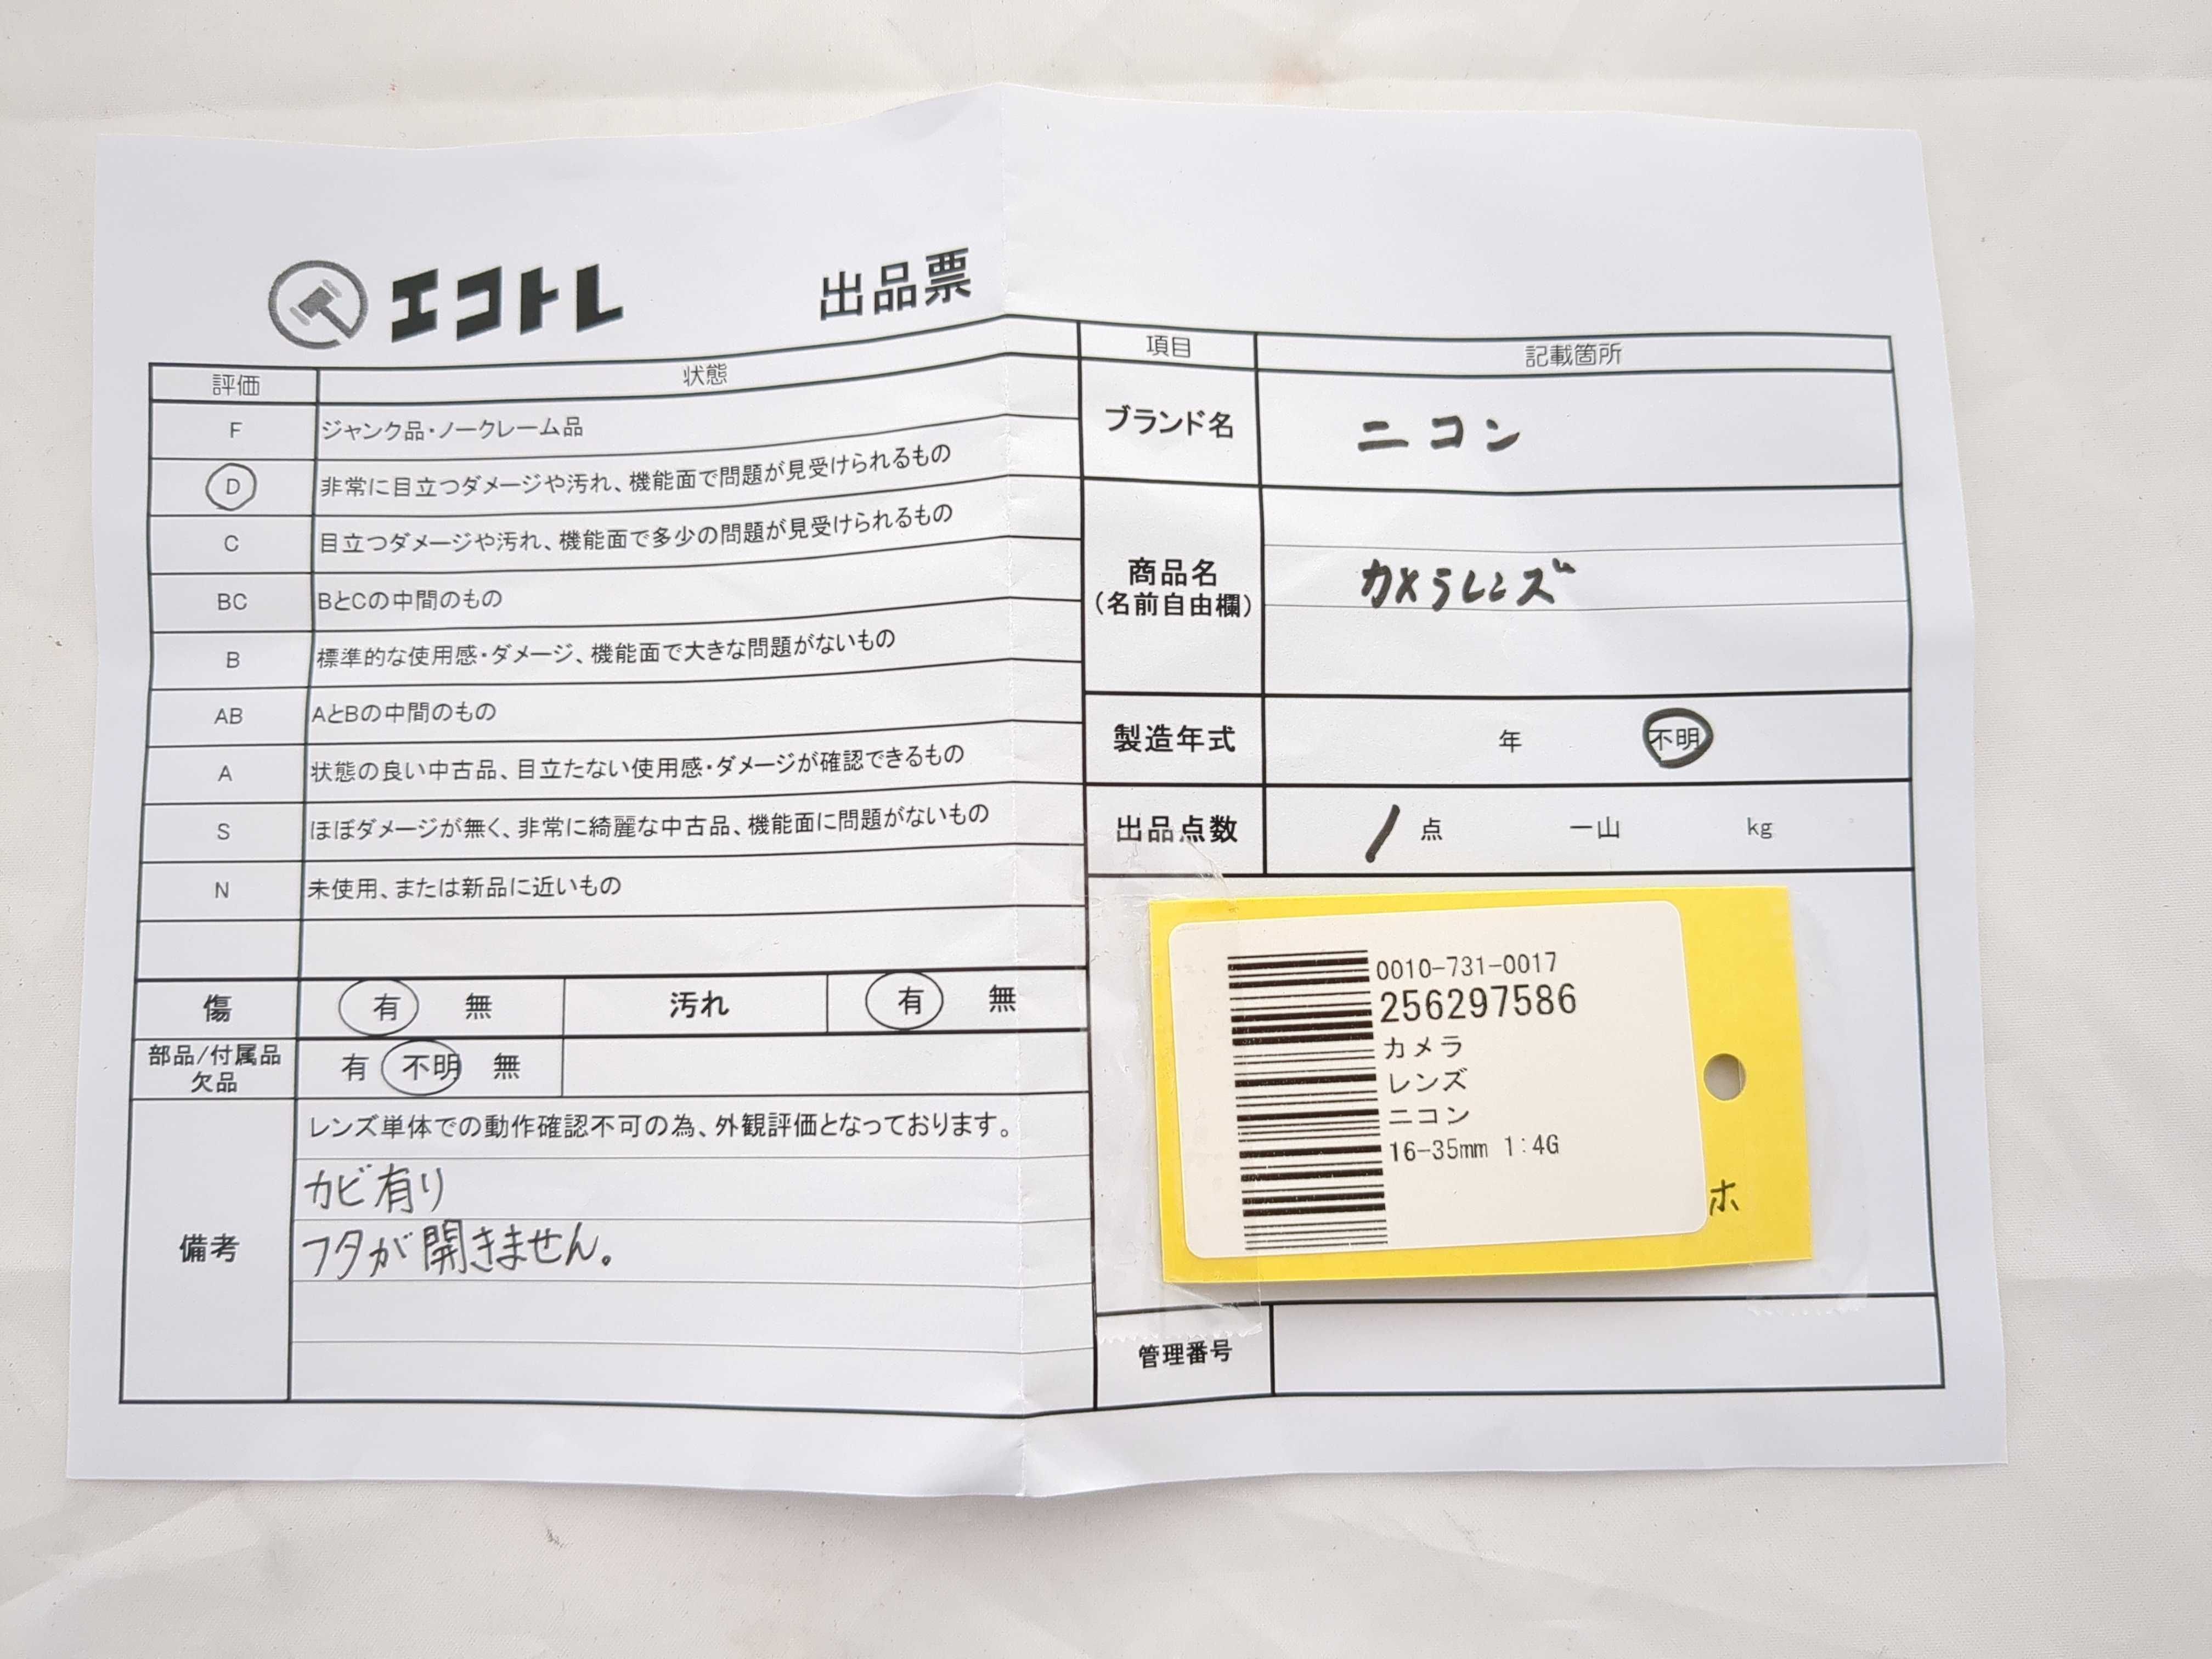 エコトレ 出品票
評価 状態
F ジャンク品・ノークレーム品
D 非常に目立つダメージや汚れ、機能面で問題が見受けられるもの
C 目立つダメージや汚れ、機能面で多少の問題が見受けられるもの
BC BとCの中間のもの
B 標準的な使用感・ダメージ、機能面で大きな問題がないもの
AB AとBの中間のもの
A 状態の良い中古品、目立たない使用感・ダメージが確認できるもの
S ほぼダメージが無く、非常に綺麗な中古品、機能面に問題がないもの
N 未使用、または新品に近いもの
傷 有 無 汚れ 有 無
部品/付属品
欠品 有 不明 無
備考
レンズ単体での動作確認不可の為、外観評価となっております。
カビ有り
フタが開きません。
項目 記載箇所
ブランド名 ニコン
商品名
(名前自由欄)
カメラレンズ
製造年式 年 不明
出品点数 1 点 一山 kg
0010-731-0017
256297586
カメラ
レンズ
ニコン
16-35mm 1:4G
ホ
管理番号